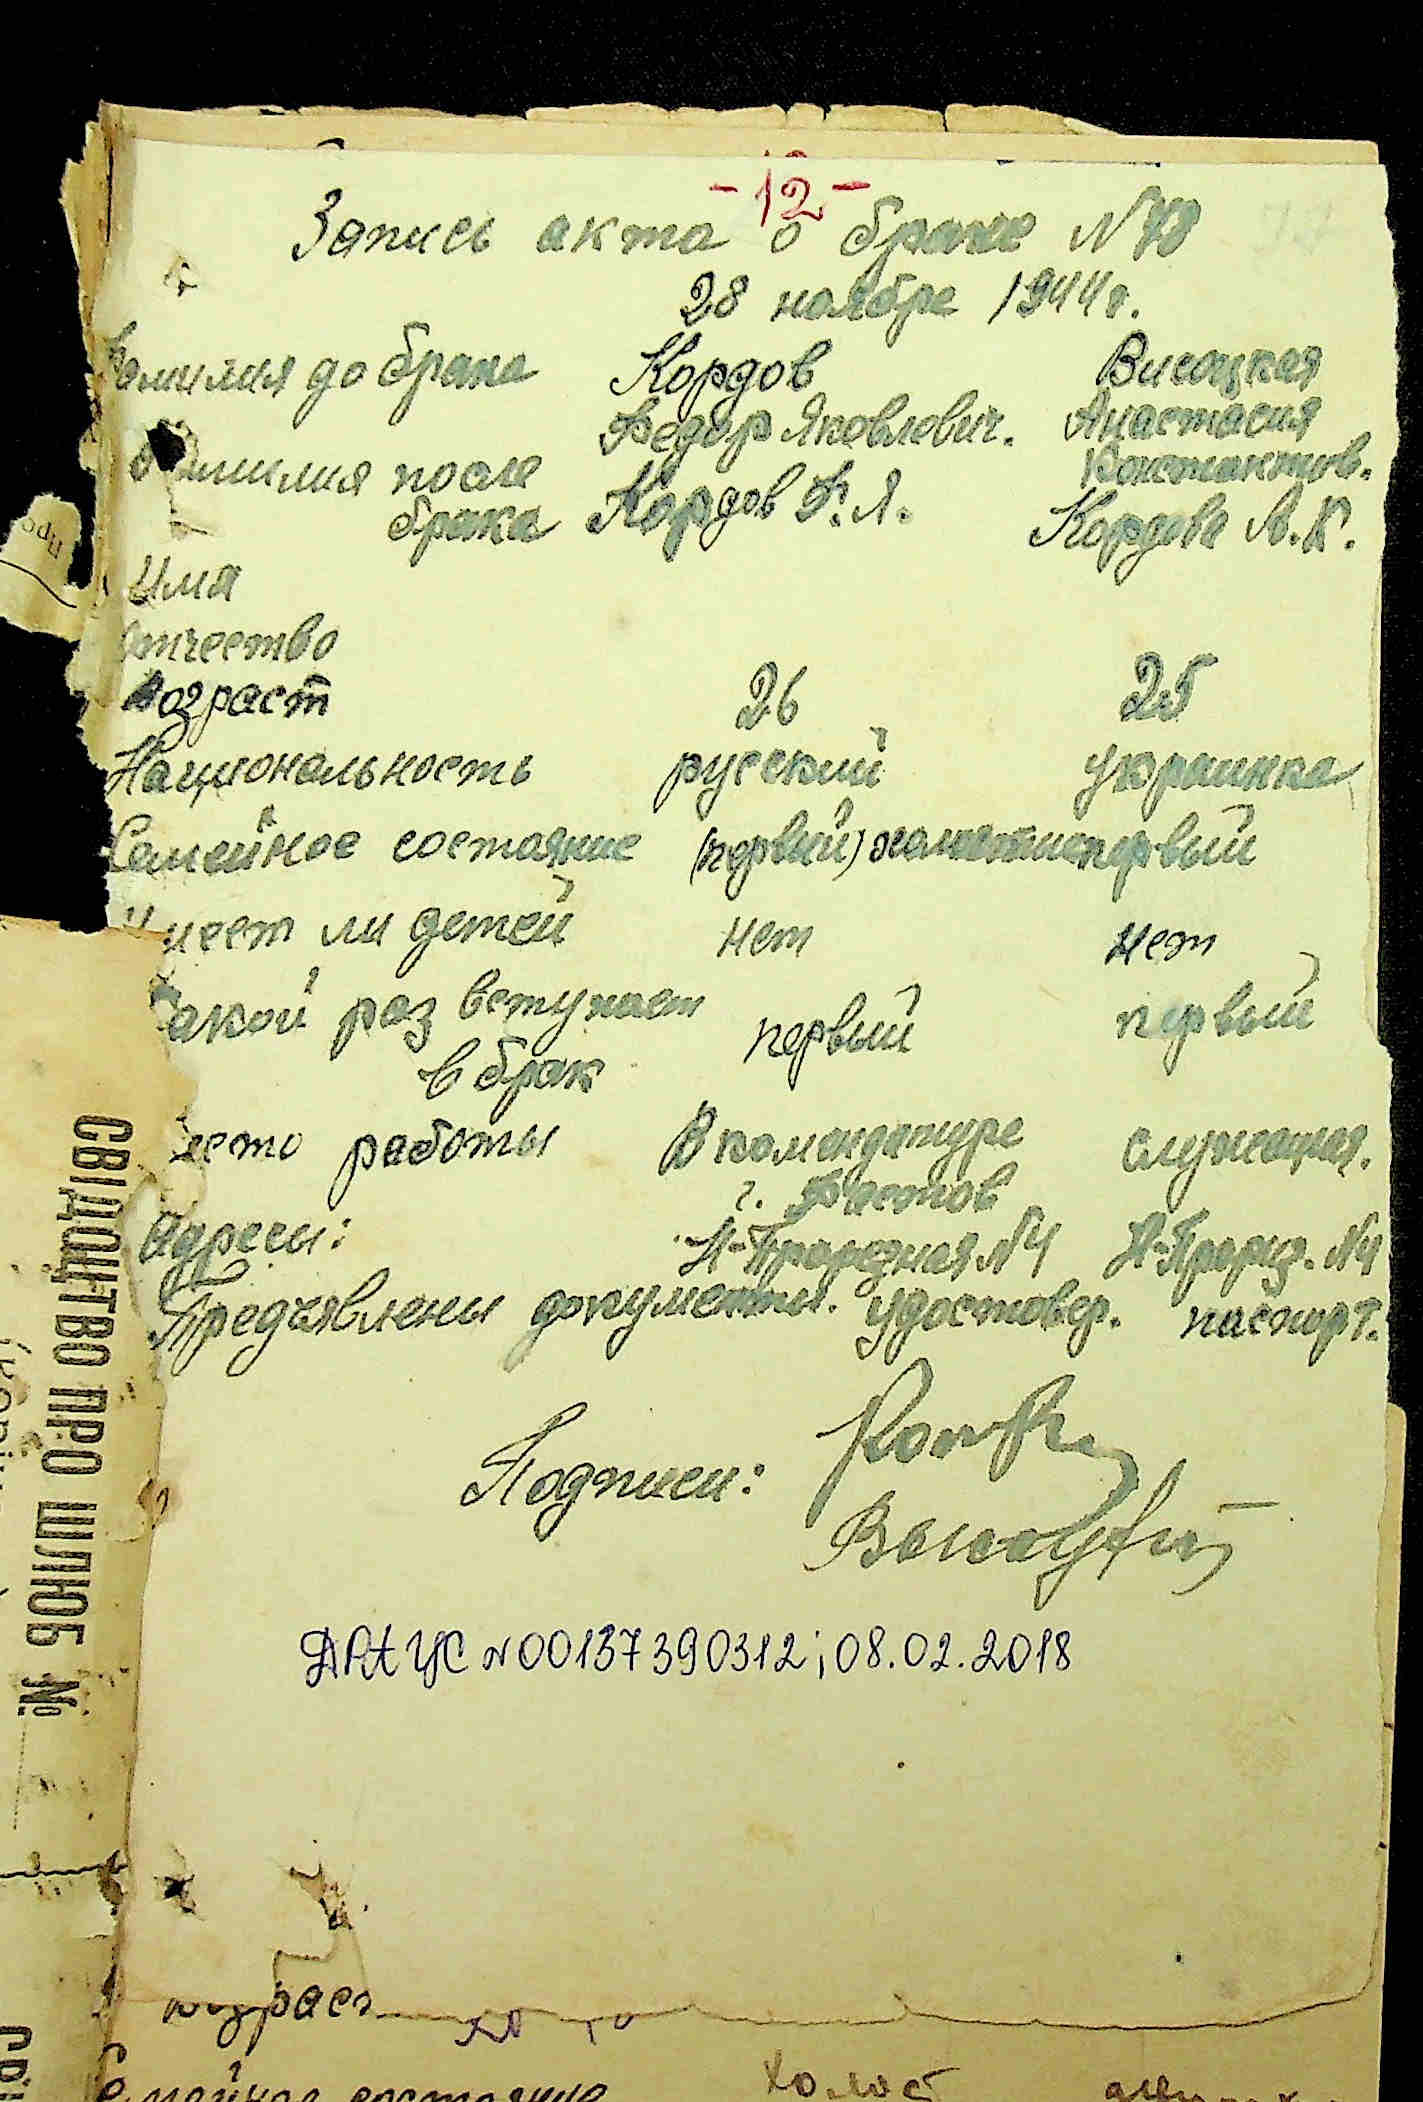 -12-
Запись акта о браке N
28 ноября 1944г.
Фамилия до брака Кордов Висоцкая
Федор Яковлович. Анастасия
Константинов.
Фамилия после
брака Кордов Ф.Я. Кордова А.К.
Имя
Отчество
Возраст 26 25
Национальность русский украинка
Семейное состояние (первый) первый
Имеет ли детей нет нет
Какой раз вступает
в брак первый первый
Место работы В комендатуре служащая.
г. Фастов
Адреса: Н-Прорезная №4 Н-Прорез. №4
Предъявлены документы. удостовер. паспорт.
Подписи:
Высоцкая
ДРАЦС N00137390312; 08.02.2018
СВІДОЦТВО ПРО ШЛЮБ №
возраст
Семейное состояние холост